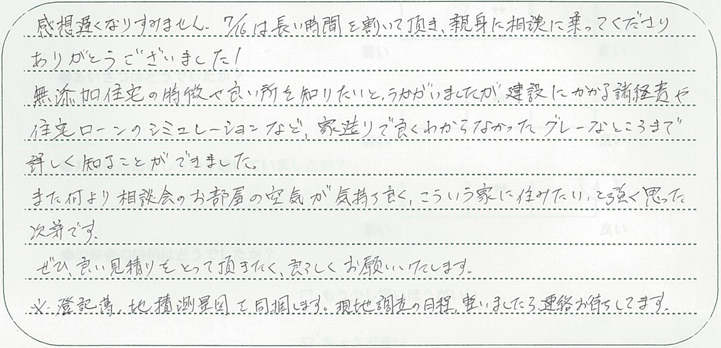 感想遅くなりすみません。7/16は長い時間を割いて頂き、親身に相談に乗ってくださり
ありがとうございました!
無添加住宅の特徴や良い所を知りたいと、うかがいましたが、建設にかかる諸経費や
住宅ローンのシミュレーションなど、家造りで良くわからなかったグレーなところまで
詳しく知ることができました。
また何より相談会のお部屋の空気が気持ち良く、こういう家に住みたい、と強く思った
次第です。
ぜひ、良い見積りをとって頂きたく、宜しくお願いいたします。
※登記簿、地積測量図を同梱します。現地調査の日程、整いましたら連絡お待ちしてます。